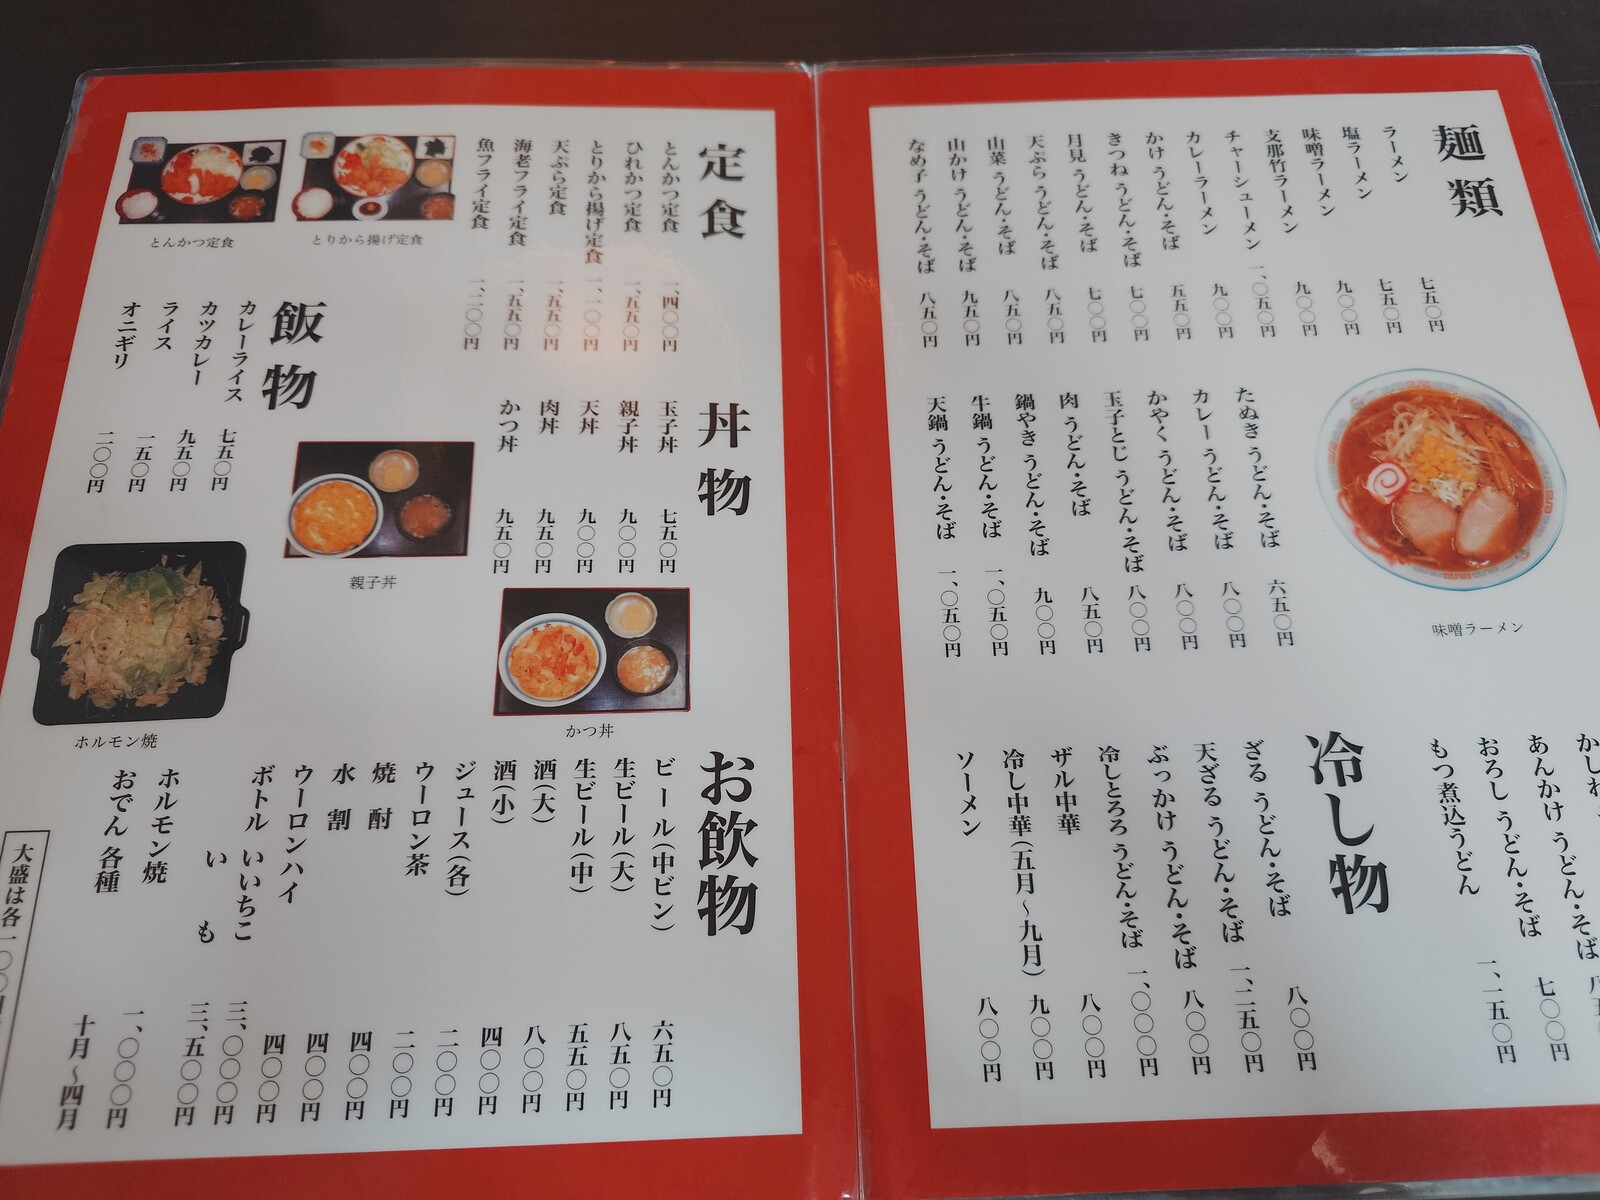 麺類
ラーメン 七五〇円
塩ラーメン 七五〇円
味噌ラーメン 九〇〇円
支那竹ラーメン 九〇〇円
チャーシューメン 一、〇五〇円
カレーラーメン 九〇〇円
かけ うどん・そば 五五〇円
きつね うどん・そば 七〇〇円
月見 うどん・そば 七〇〇円
天ぷら うどん・そば 八五〇円
山菜 うどん・そば 八五〇円
山かけ うどん・そば 九五〇円
なめ子 うどん・そば 八五〇円
たぬき うどん・そば 六五〇円
カレー うどん・そば 八〇〇円
かやく うどん・そば 八〇〇円
玉子とじ うどん・そば 八〇〇円
肉 うどん・そば 八五〇円
鍋やき うどん・そば 九〇〇円
牛鍋 うどん・そば 一、〇五〇円
天鍋 うどん・そば 一、〇五〇円
味噌ラーメン
かしわ
あんかけ うどん・そば 七〇〇円
おろし うどん・そば 一、二五〇円
もつ煮込うどん
冷し物
ざる うどん・そば 八〇〇円
天ざる うどん・そば 一、二五〇円
ぶっかけ うどん・そば 八〇〇円
冷しとろろ うどん・そば 一、〇〇〇円
ザル中華 八〇〇円
冷し中華(五月〜九月) 九〇〇円
ソーメン 八〇〇円
定食
とんかつ定食 一、四〇〇円
ひれかつ定食 一、五五〇円
とりから揚げ定食 一、一〇〇円
天ぷら定食 一、五五〇円
海老フライ定食 一、五五〇円
魚フライ定食 一、二〇〇円
とりから揚げ定食
とんかつ定食
丼物
玉子丼 七五〇円
親子丼 九〇〇円
天丼 九〇〇円
肉丼 九五〇円
かつ丼 九五〇円
飯物
カレーライス 七五〇円
カツカレー 九五〇円
ライス 一五〇円
オニギリ 二〇〇円
親子丼
かつ丼
ホルモン焼
お飲物
ビール(中ビン) 六五〇円
生ビール(大) 八五〇円
生ビール(中) 五五〇円
酒(大) 八〇〇円
酒(小) 四〇〇円
ジュース(各) 二〇〇円
ウーロン茶 二〇〇円
焼酎 四〇〇円
水割 四〇〇円
ウーロンハイ 四〇〇円
ボトル いいちこ 三、〇〇〇円
いも 三、五〇〇円
ホルモン焼 一、〇〇〇円
おでん 各種 十月〜四月
大盛は各一〇〇円